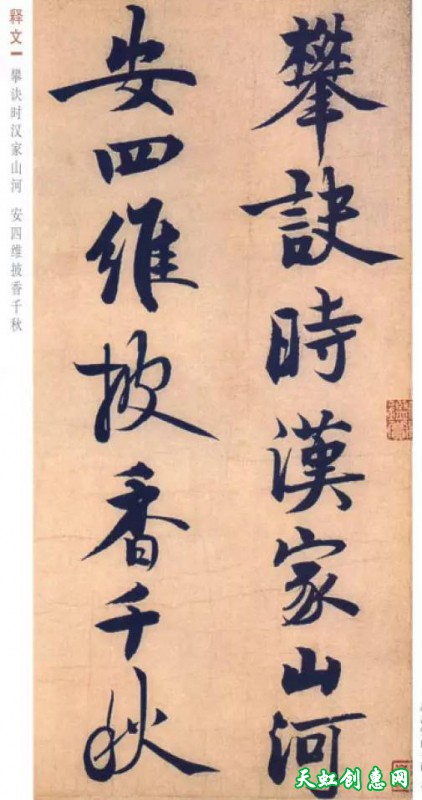 释文一
攀诀时汉家山河 安四维披香千秋
攀訣時漢家山河
安四維披香千秋
天虹创惠网